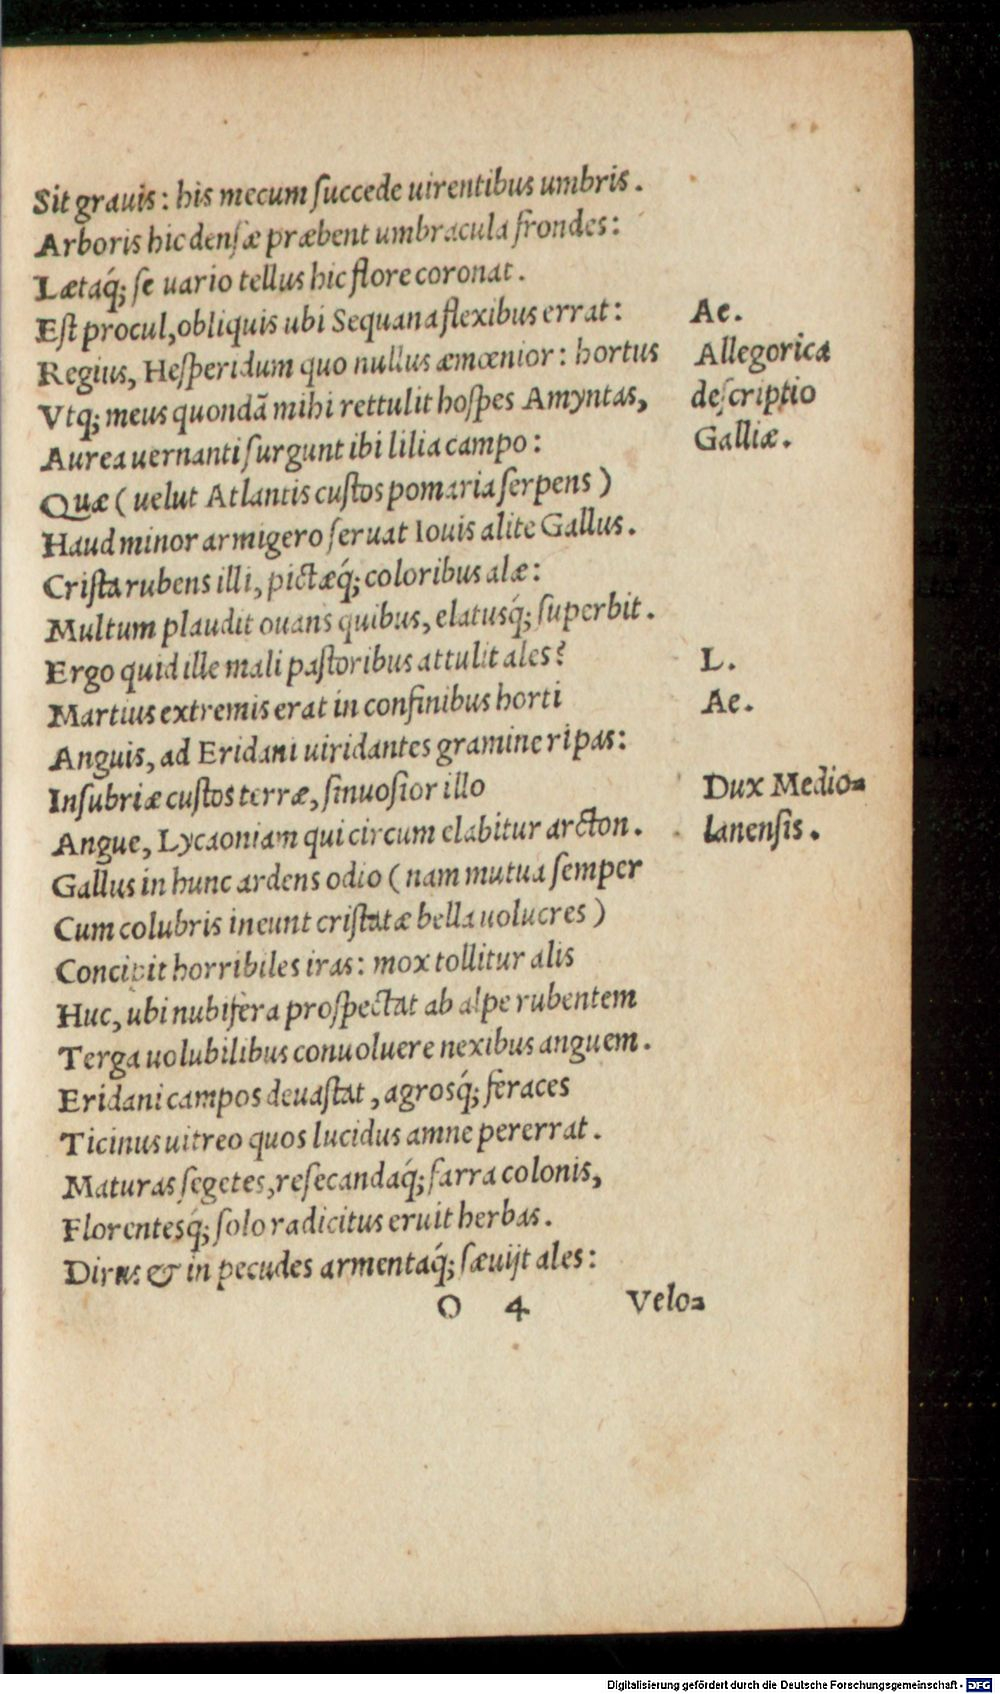 Sit grauis: his mecum ſuccede uirentibus umbris.
Arboris hic denſæ præbent umbracula frondes:
Lætaq́; ſe uario tellus hic flore coronat.
Eſt procul, obliquis ubi Sequana flexibus errat: Ae.
Regius, Heſperidum quo nullus æmœnior: hortus Allegorica
Vtq; meus quondã mihi rettulit hoſpes Amyntas, deſcriptio
Aurea uernanti ſurgunt ibi lilia campo: Galliæ.
Quæ (uelut Atlantis cuſtos pomaria ſerpens)
Haud minor armigero ſeruat Iouis alite Gallus.
Criſta rubens illi, pictæq́; coloribus alæ:
Multum plaudit ouans quibus, elatusq́; ſuperbit.
Ergo quid ille mali paſtoribus attulit ales? L.
Martius extremis erat in confinibus horti Ae.
Anguis, ad Eridani uiridantes gramine ripas:
Inſubriæ cuſtos terræ, ſinuoſior illo Dux Medio-
Angue, Lycaoniam qui circum elabitur arcton. lanenſis.
Gallus in hunc ardens odio (nam mutua ſemper
Cum colubris ineunt criſtatæ bella uolucres)
Concipit horribiles iras: mox tollitur alis
Huc, ubi nubifera proſpectat ab alpe rubentem
Terga uolubilibus conuoluere nexibus anguem.
Eridani campos deuaſtat, agrosq́; feraces
Ticinus uitreo quos lucidus amne pererrat.
Maturas ſegetes, reſecandaq́; farra colonis,
Florentesq́; ſolo radicitus eruit herbas.
Dirus & in pecudes armentaq́; ſæuijt ales:
O 4 Velo-
Digitalisierung gefördert durch die Deutsche Forschungsgemeinschaft - DFG